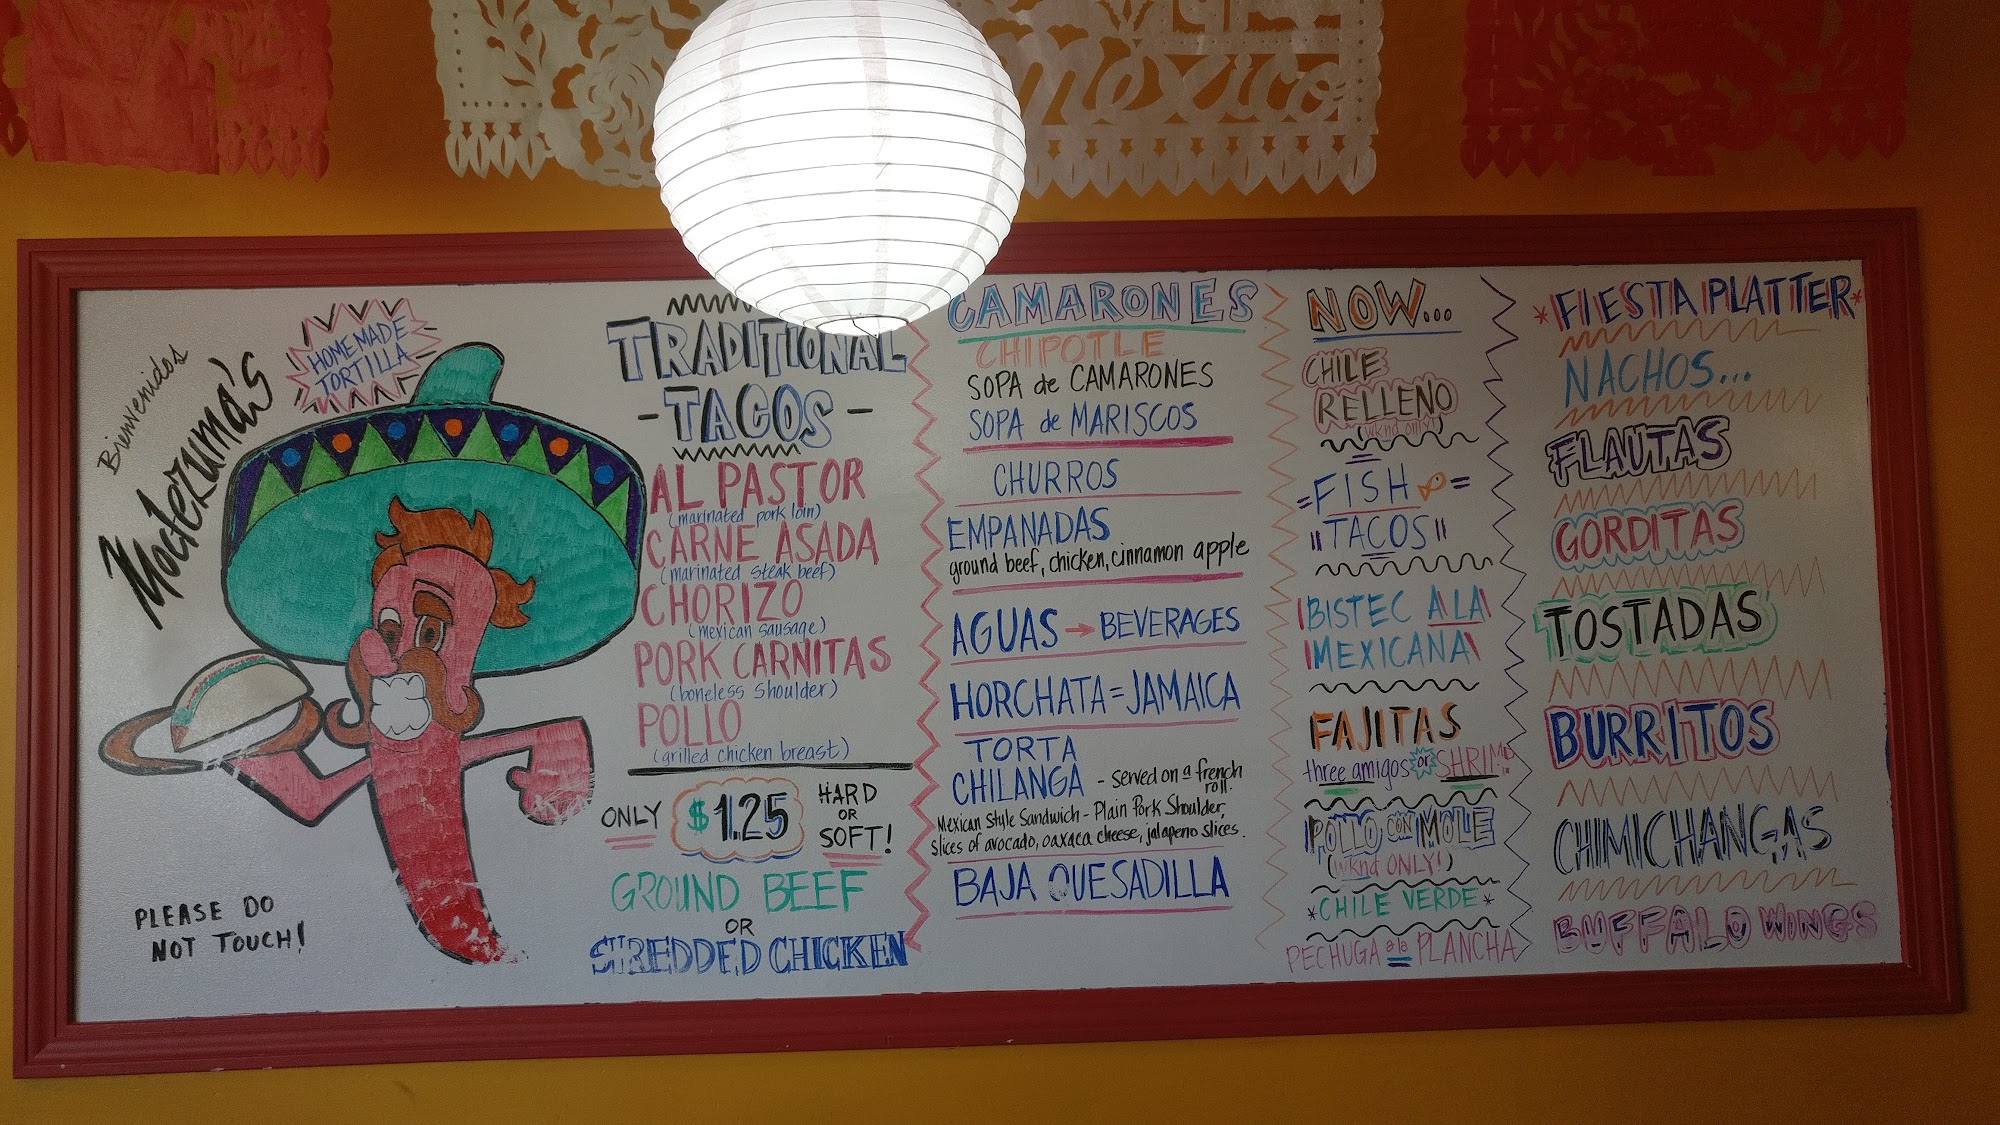 México
Bienvenidos
Moctezuma's
HOMEMADE
TORTILLA
PLEASE DO
NOT TOUCH!
TRADITIONAL
-TACOS-
AL PASTOR
(marinated pork loin)
CARNE ASADA
(marinated steak beef)
CHORIZO
(mexican sausage)
PORK CARNITAS
(boneless shoulder)
POLLO
(grilled chicken breast)
ONLY $1.25 HARD
OR
SOFT!
GROUND BEEF
OR
SHREDDED CHICKEN
CAMARONES
CHIPOTLE
SOPA de CAMARONES
SOPA de MARISCOS
CHURROS
EMPANADAS
ground beef, chicken, cinnamon apple
AGUAS → BEVERAGES
HORCHATA = JAMAICA
TORTA
CHILANGA - served on a french
roll.
Mexican Style Sandwich - Plain Pork Shoulder,
slices of avocado, oaxaca cheese, jalapeno slices.
BAJA QUESADILLA
NOW...
CHILE
RELLENO
(wknd only!)
=FISH=
"TACOS"
BISTEC A LA
MEXICANA
FAJITAS
three amigos or SHRIMP
POLLO CON MOLE
(wknd ONLY!)
*CHILE VERDE*
PECHUGA a la PLANCHA
*FIESTA PLATTER*
NACHOS...
FLAUTAS
GORDITAS
TOSTADAS
BURRITOS
CHIMICHANGAS
BUFFALO WINGS